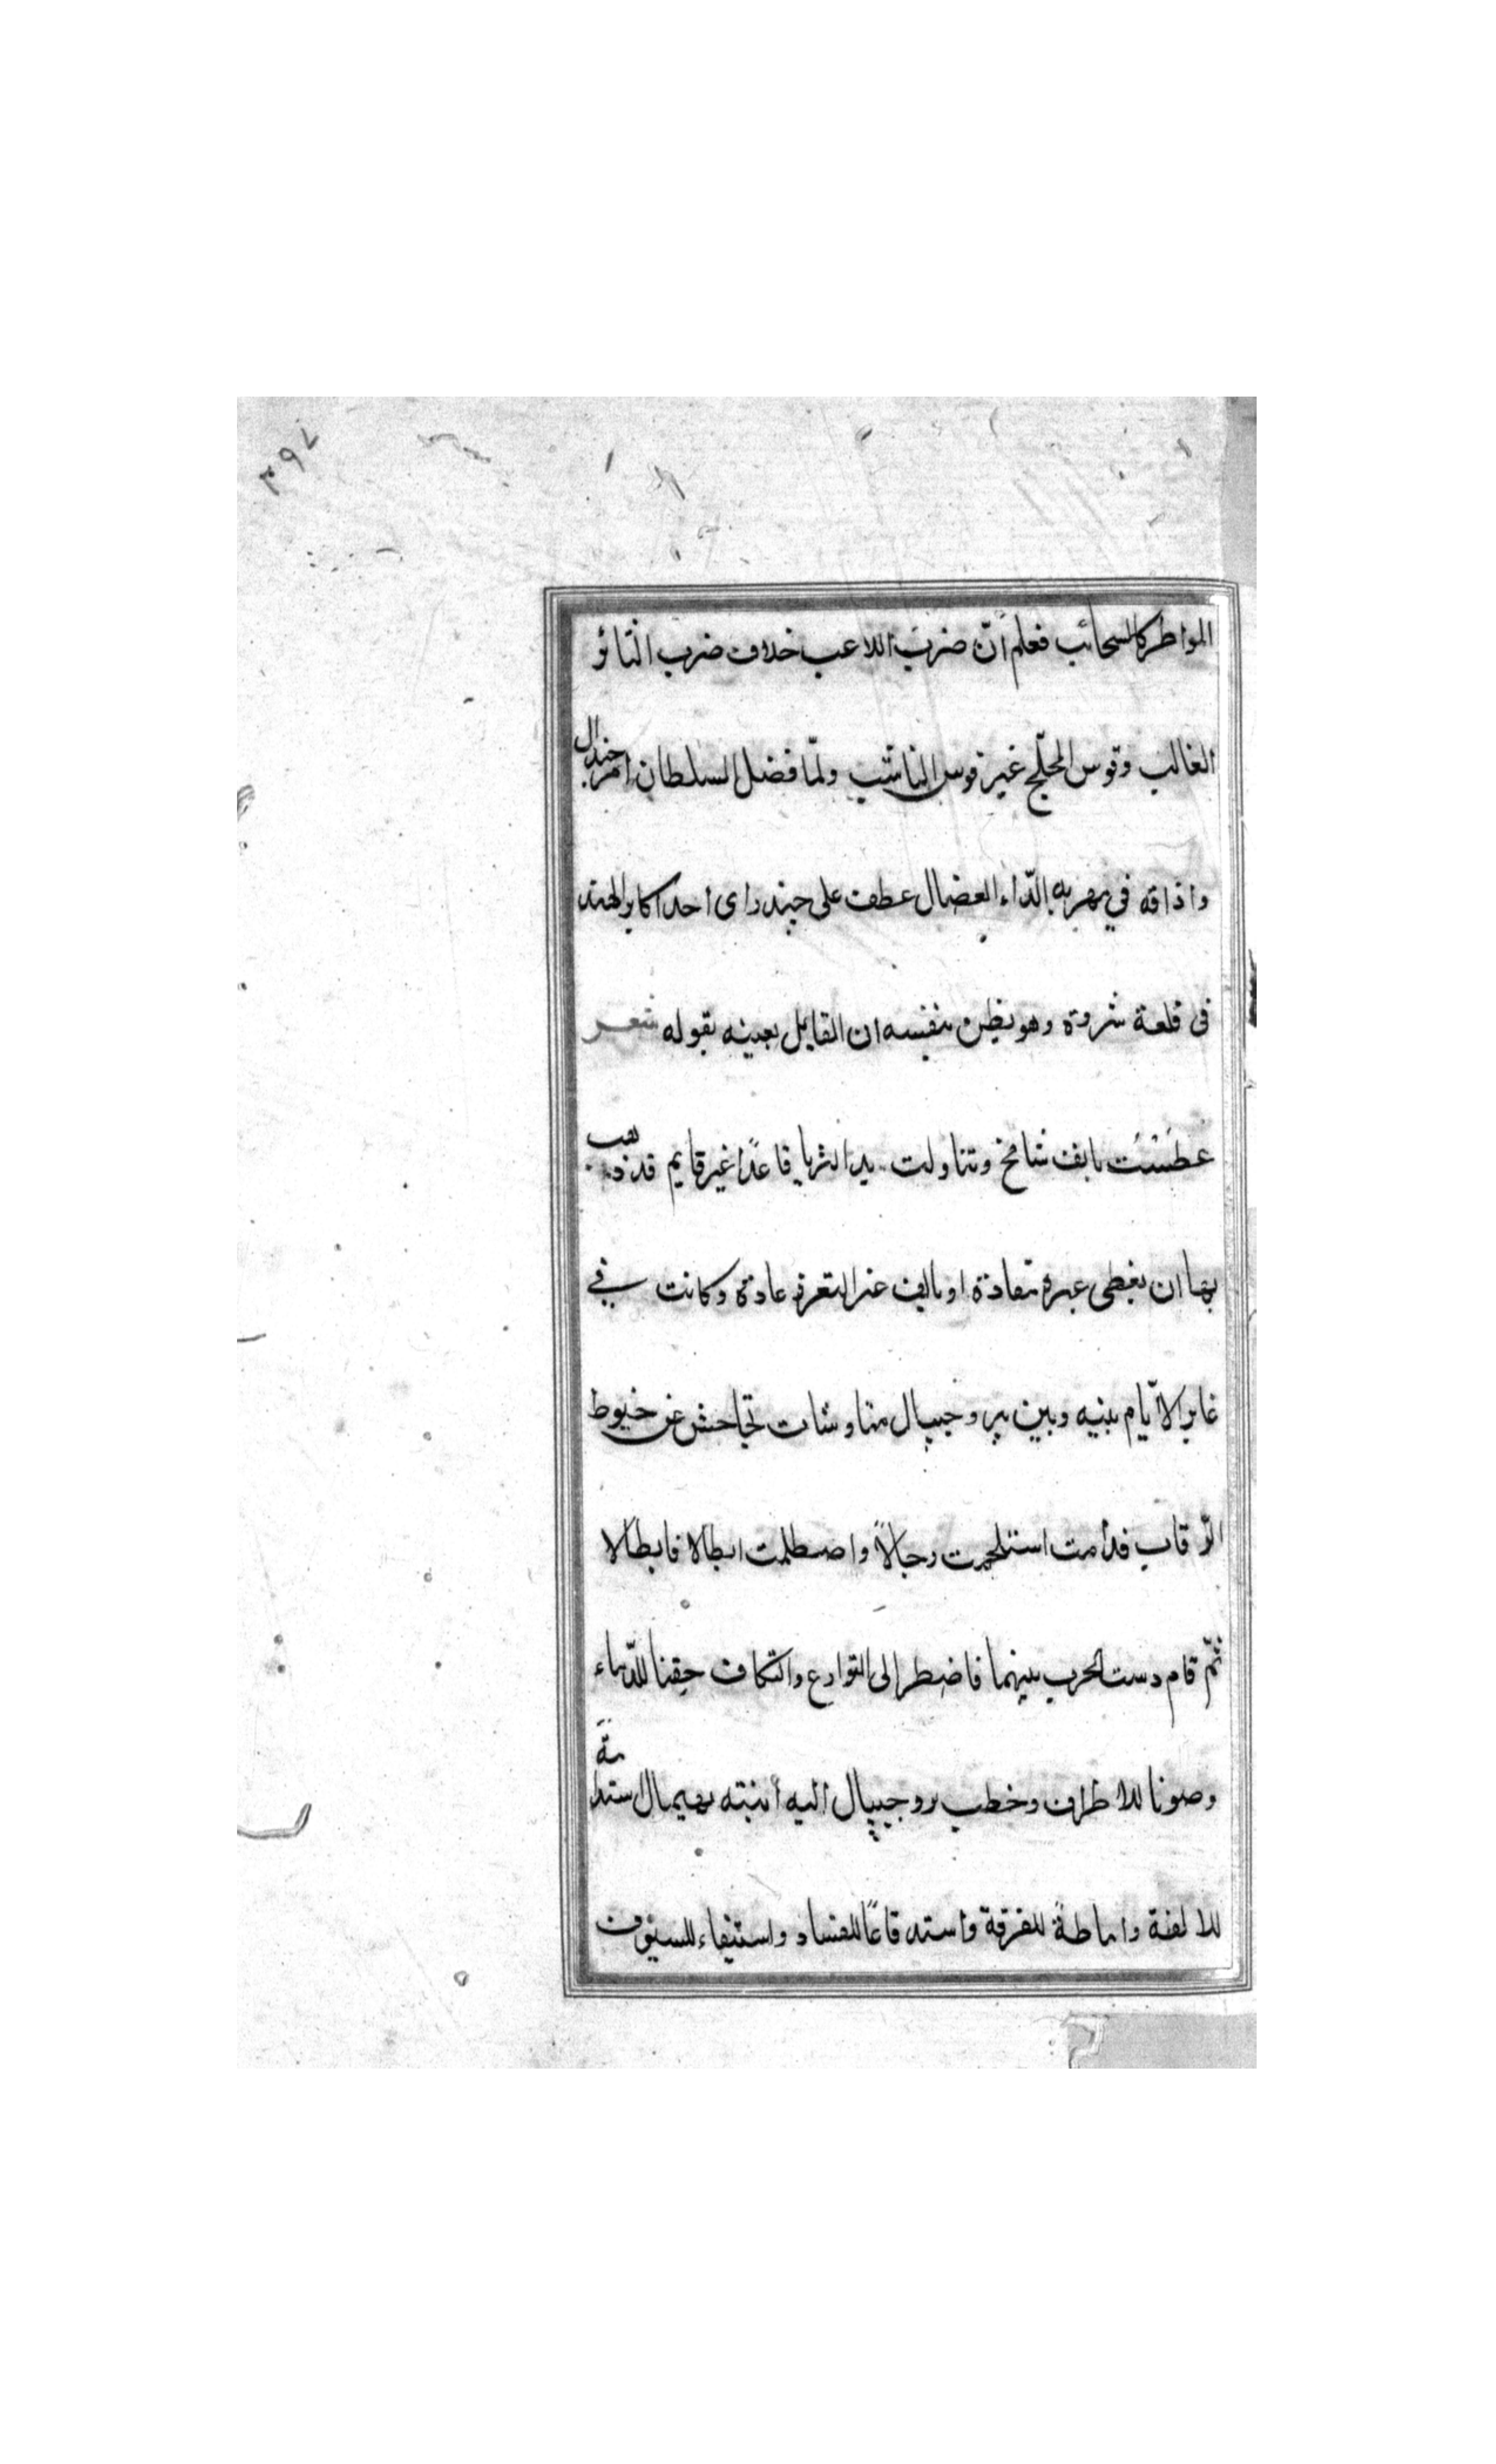 ٣٩٧
المواطر كالسحائب فعلم أنّ ضرب اللاعب خلاف ضرب الثائر
الغالب وقوس المحلّج غير قوس الناشب ولمّا فضل السلطان امر جندال
واذاقه في مهربه الدّاء العضال عطف على جندرای احد اكابر الهند
فی قلعة شروة وهو يظن بنفسه ان القايل بعينه بقوله شعر
عطست بانف شامخ وتناولت يدا الثريا قاعدًا غير قايم قد ذهب
بها ان يعطى غيره مقادة او يالف غير التعزز عادة وكانت في
غابر الأيّام بينه وبين بروجيپال مناوشات تجاحش عن خيوط
الرّقاب فدامت استلحمت رجالاً واصطلمت ابطالا فابطالا
ثمّ قام دست الحرب بينهما فاضطر الى التوادع والتكاف حقنا للدّماء
وصونا للاطراف وخطب بروجيپال اليه ابنته بهيمال ستدامة
للالفة واماطة للفرقة واستدقاعًا للفساد واستيفاء للسيوف